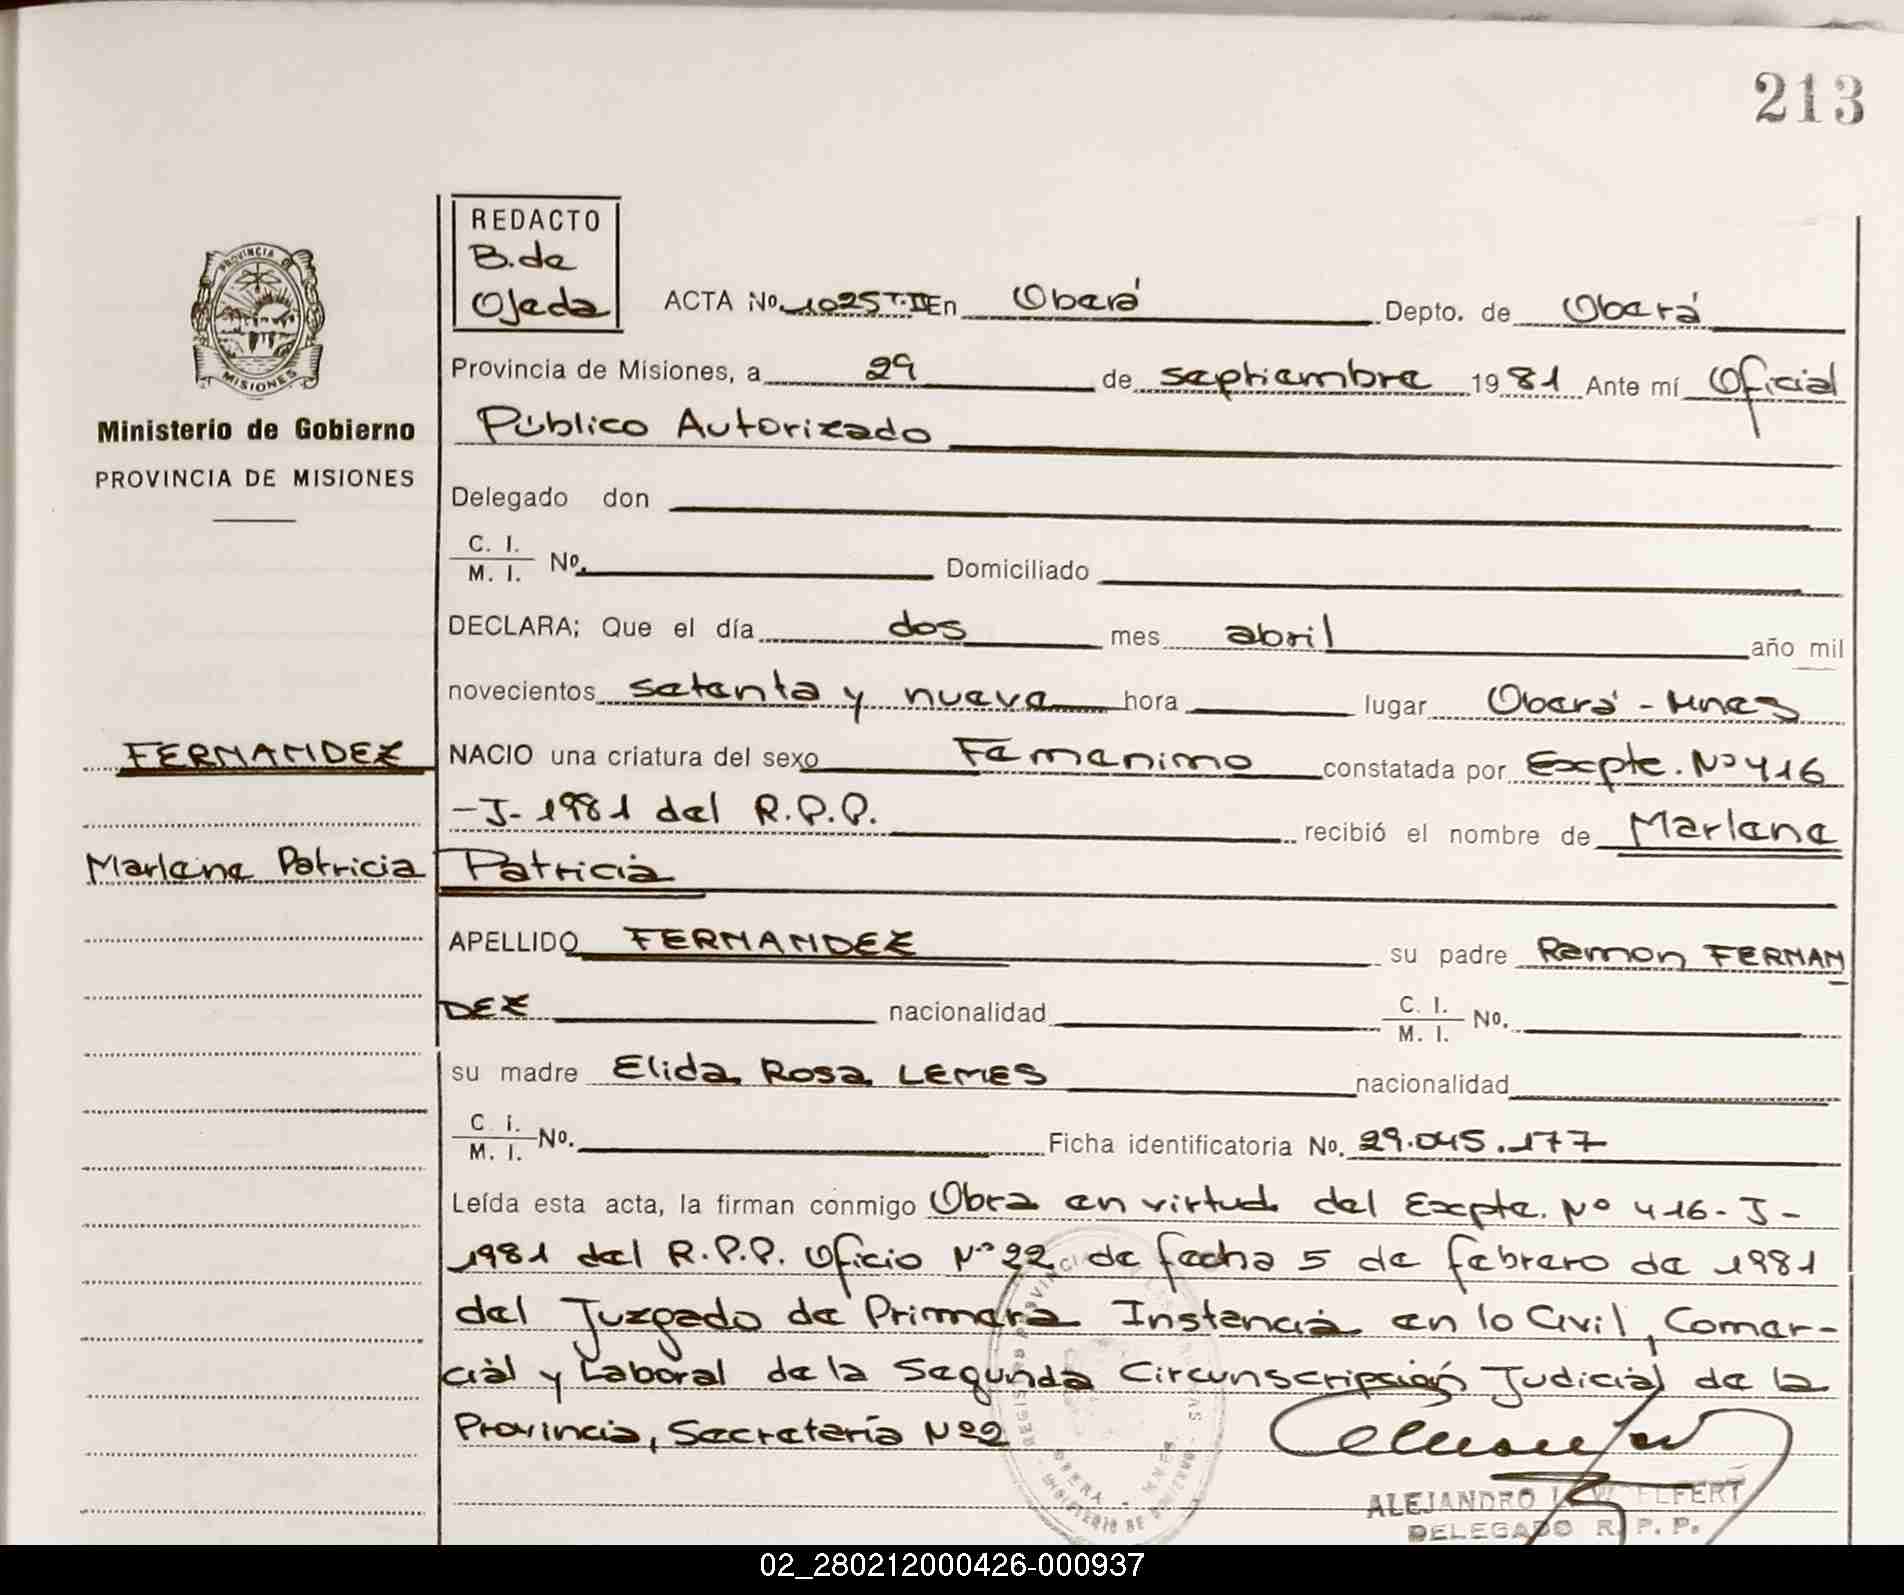 213
REDACTO
B. de
Ojeda
ACTA No. 1025 T. II En Oberá Depto. de Oberá
Provincia de Misiones, a 29 de septiembre 1981 Ante mí Oficial
Público Autorizado
Delegado don
C. I.
M. I. No. Domiciliado
DECLARA; Que el día dos mes abril año mil
novecientos setenta y nueve hora lugar Oberá - Mnes
NACIO una criatura del sexo Femenino constatada por Expte. Nº 416
-J- 1981 del R.P.P. recibió el nombre de Marlene
Patricia
APELLIDO FERNANDEZ su padre Ramon FERNAN
DEZ nacionalidad C. I.
M. I. No.
su madre Elida Rosa LEMES nacionalidad
C. I.
M. I. No. Ficha identificatoria No. 29.045.177
Leída esta acta, la firman conmigo Obra en virtud del Expte. Nº 416-J-
1981 del R.P.P. Oficio Nº 22 de fecha 5 de febrero de 1981
del Juzgado de Primera Instancia en lo Civil, Comer-
cial y Laboral de la Segunda Circunscripción Judicial de la
Provincia, Secretaría Nº 2
ALEJANDRO
DELEGADO R. P. P.
PROVINCIA DE
MISIONES
Ministerio de Gobierno
PROVINCIA DE MISIONES
FERNANDEZ
Marlene Patricia
OBERA - MNES
MINISTERIO DE GOBIERNO
02_280212000426-000937